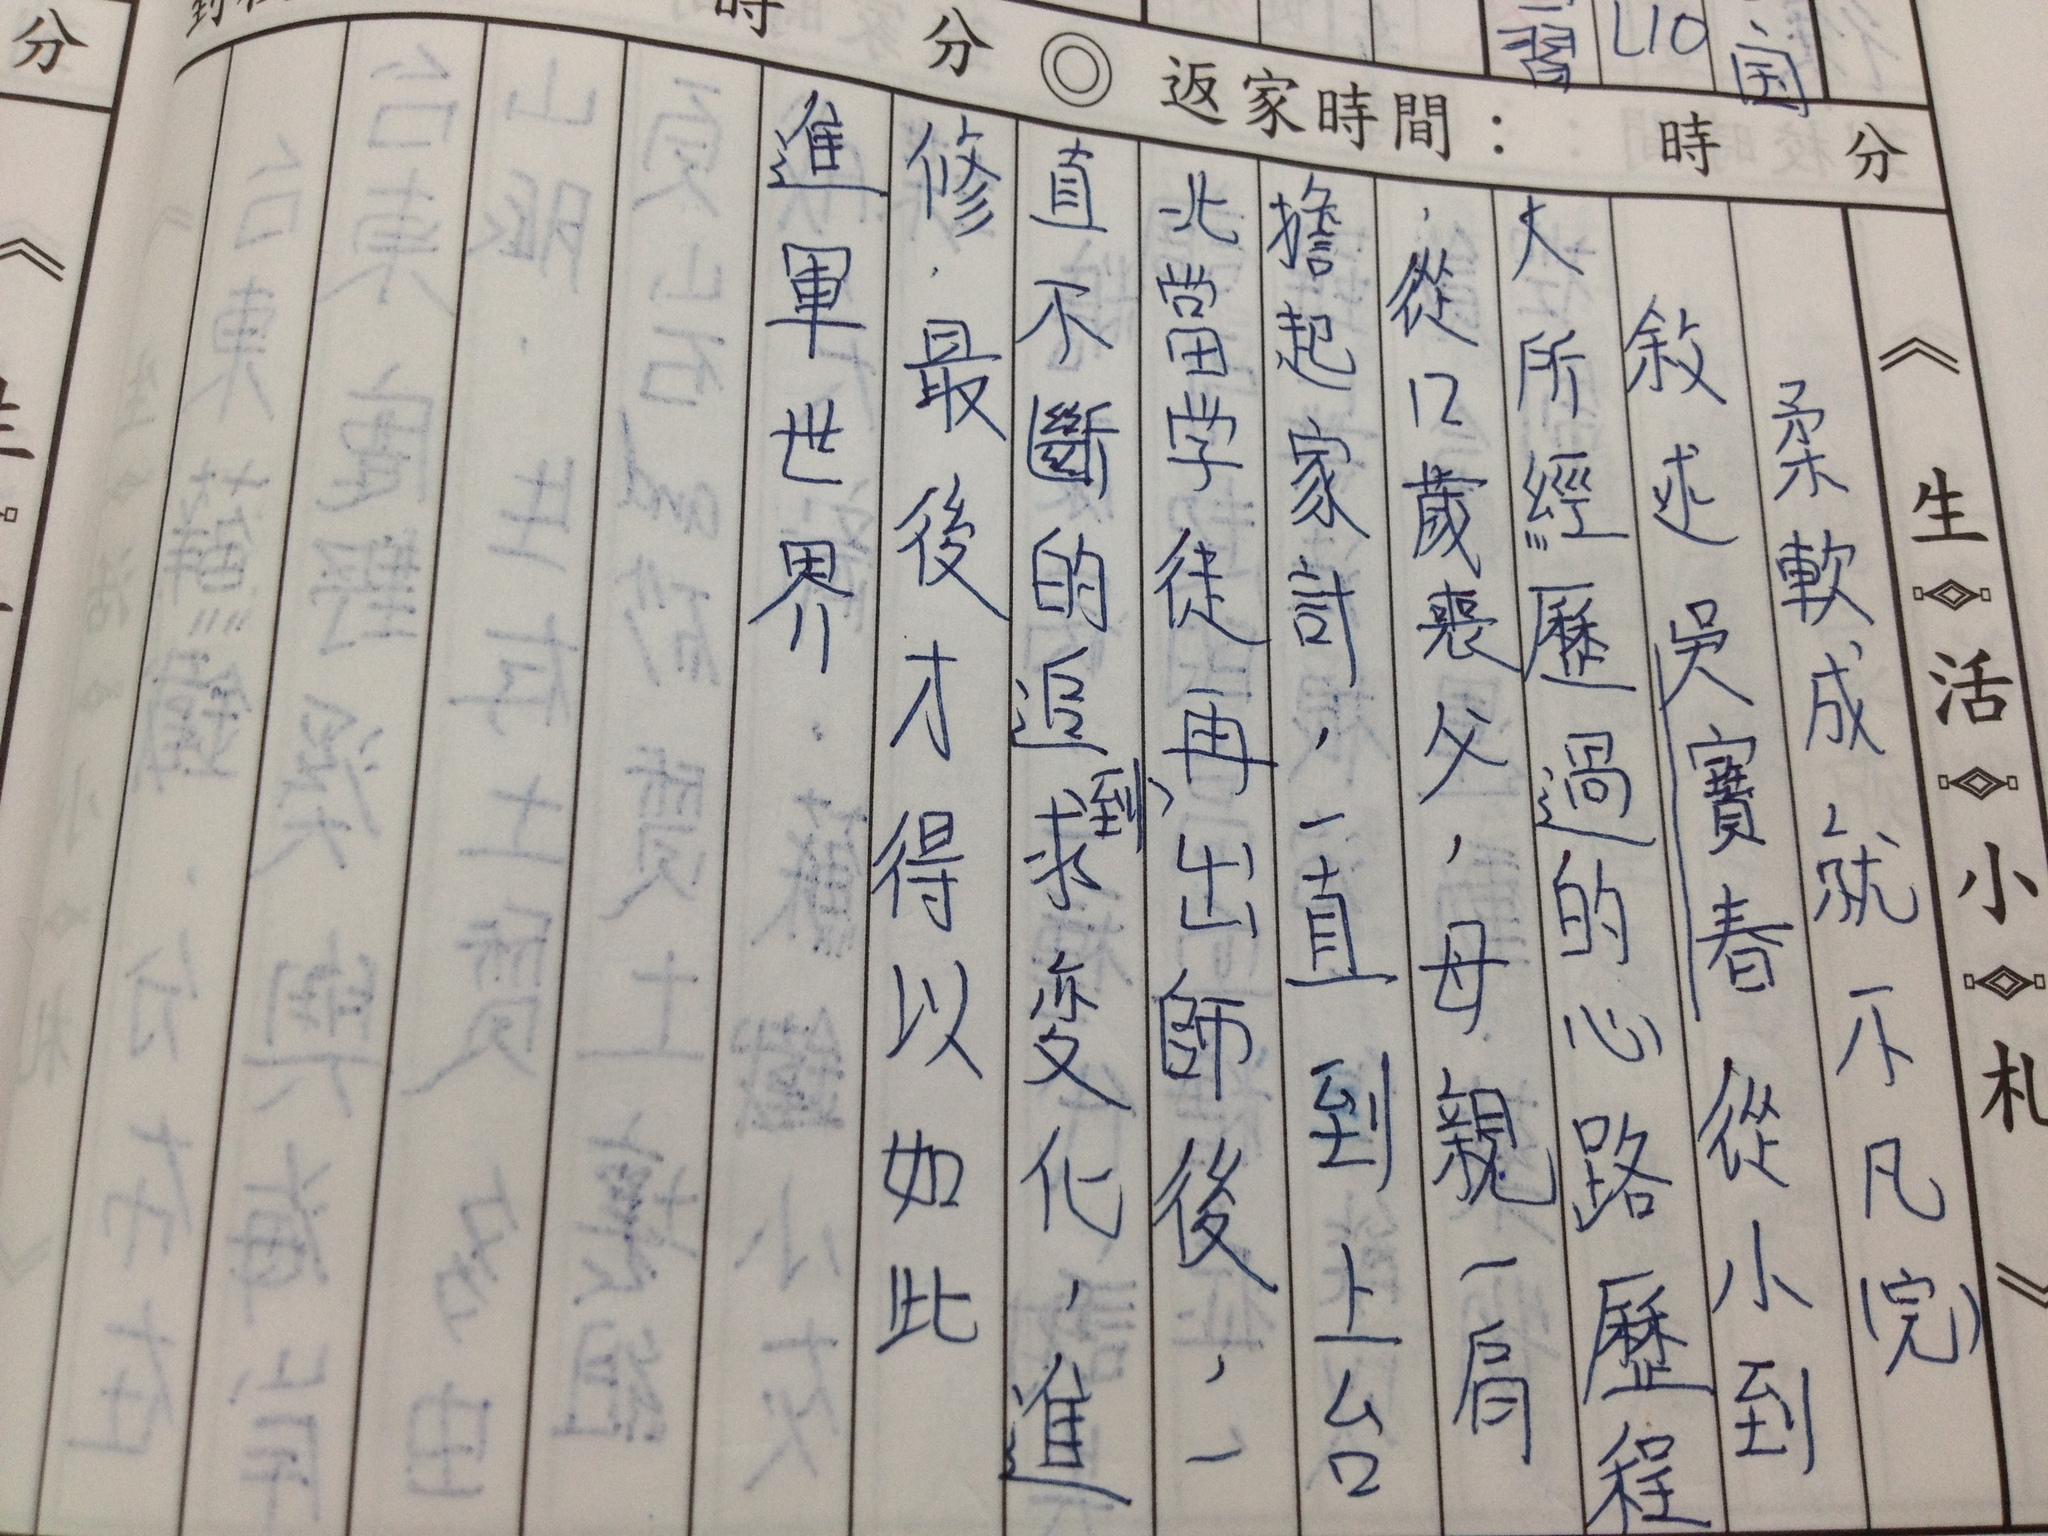 国
L10
習
分 ◎ 返家時間： 時 分
《生活小札》
柔軟成就不凡(完)
敘述吳寶春從小到
大所經歷過的心路歷程
，從12歲喪父，母親一肩
擔起家計，一直到上台
北當学徒再出師後，一
直不斷的追求到变化，進
修，最後才得以如此
進軍世界